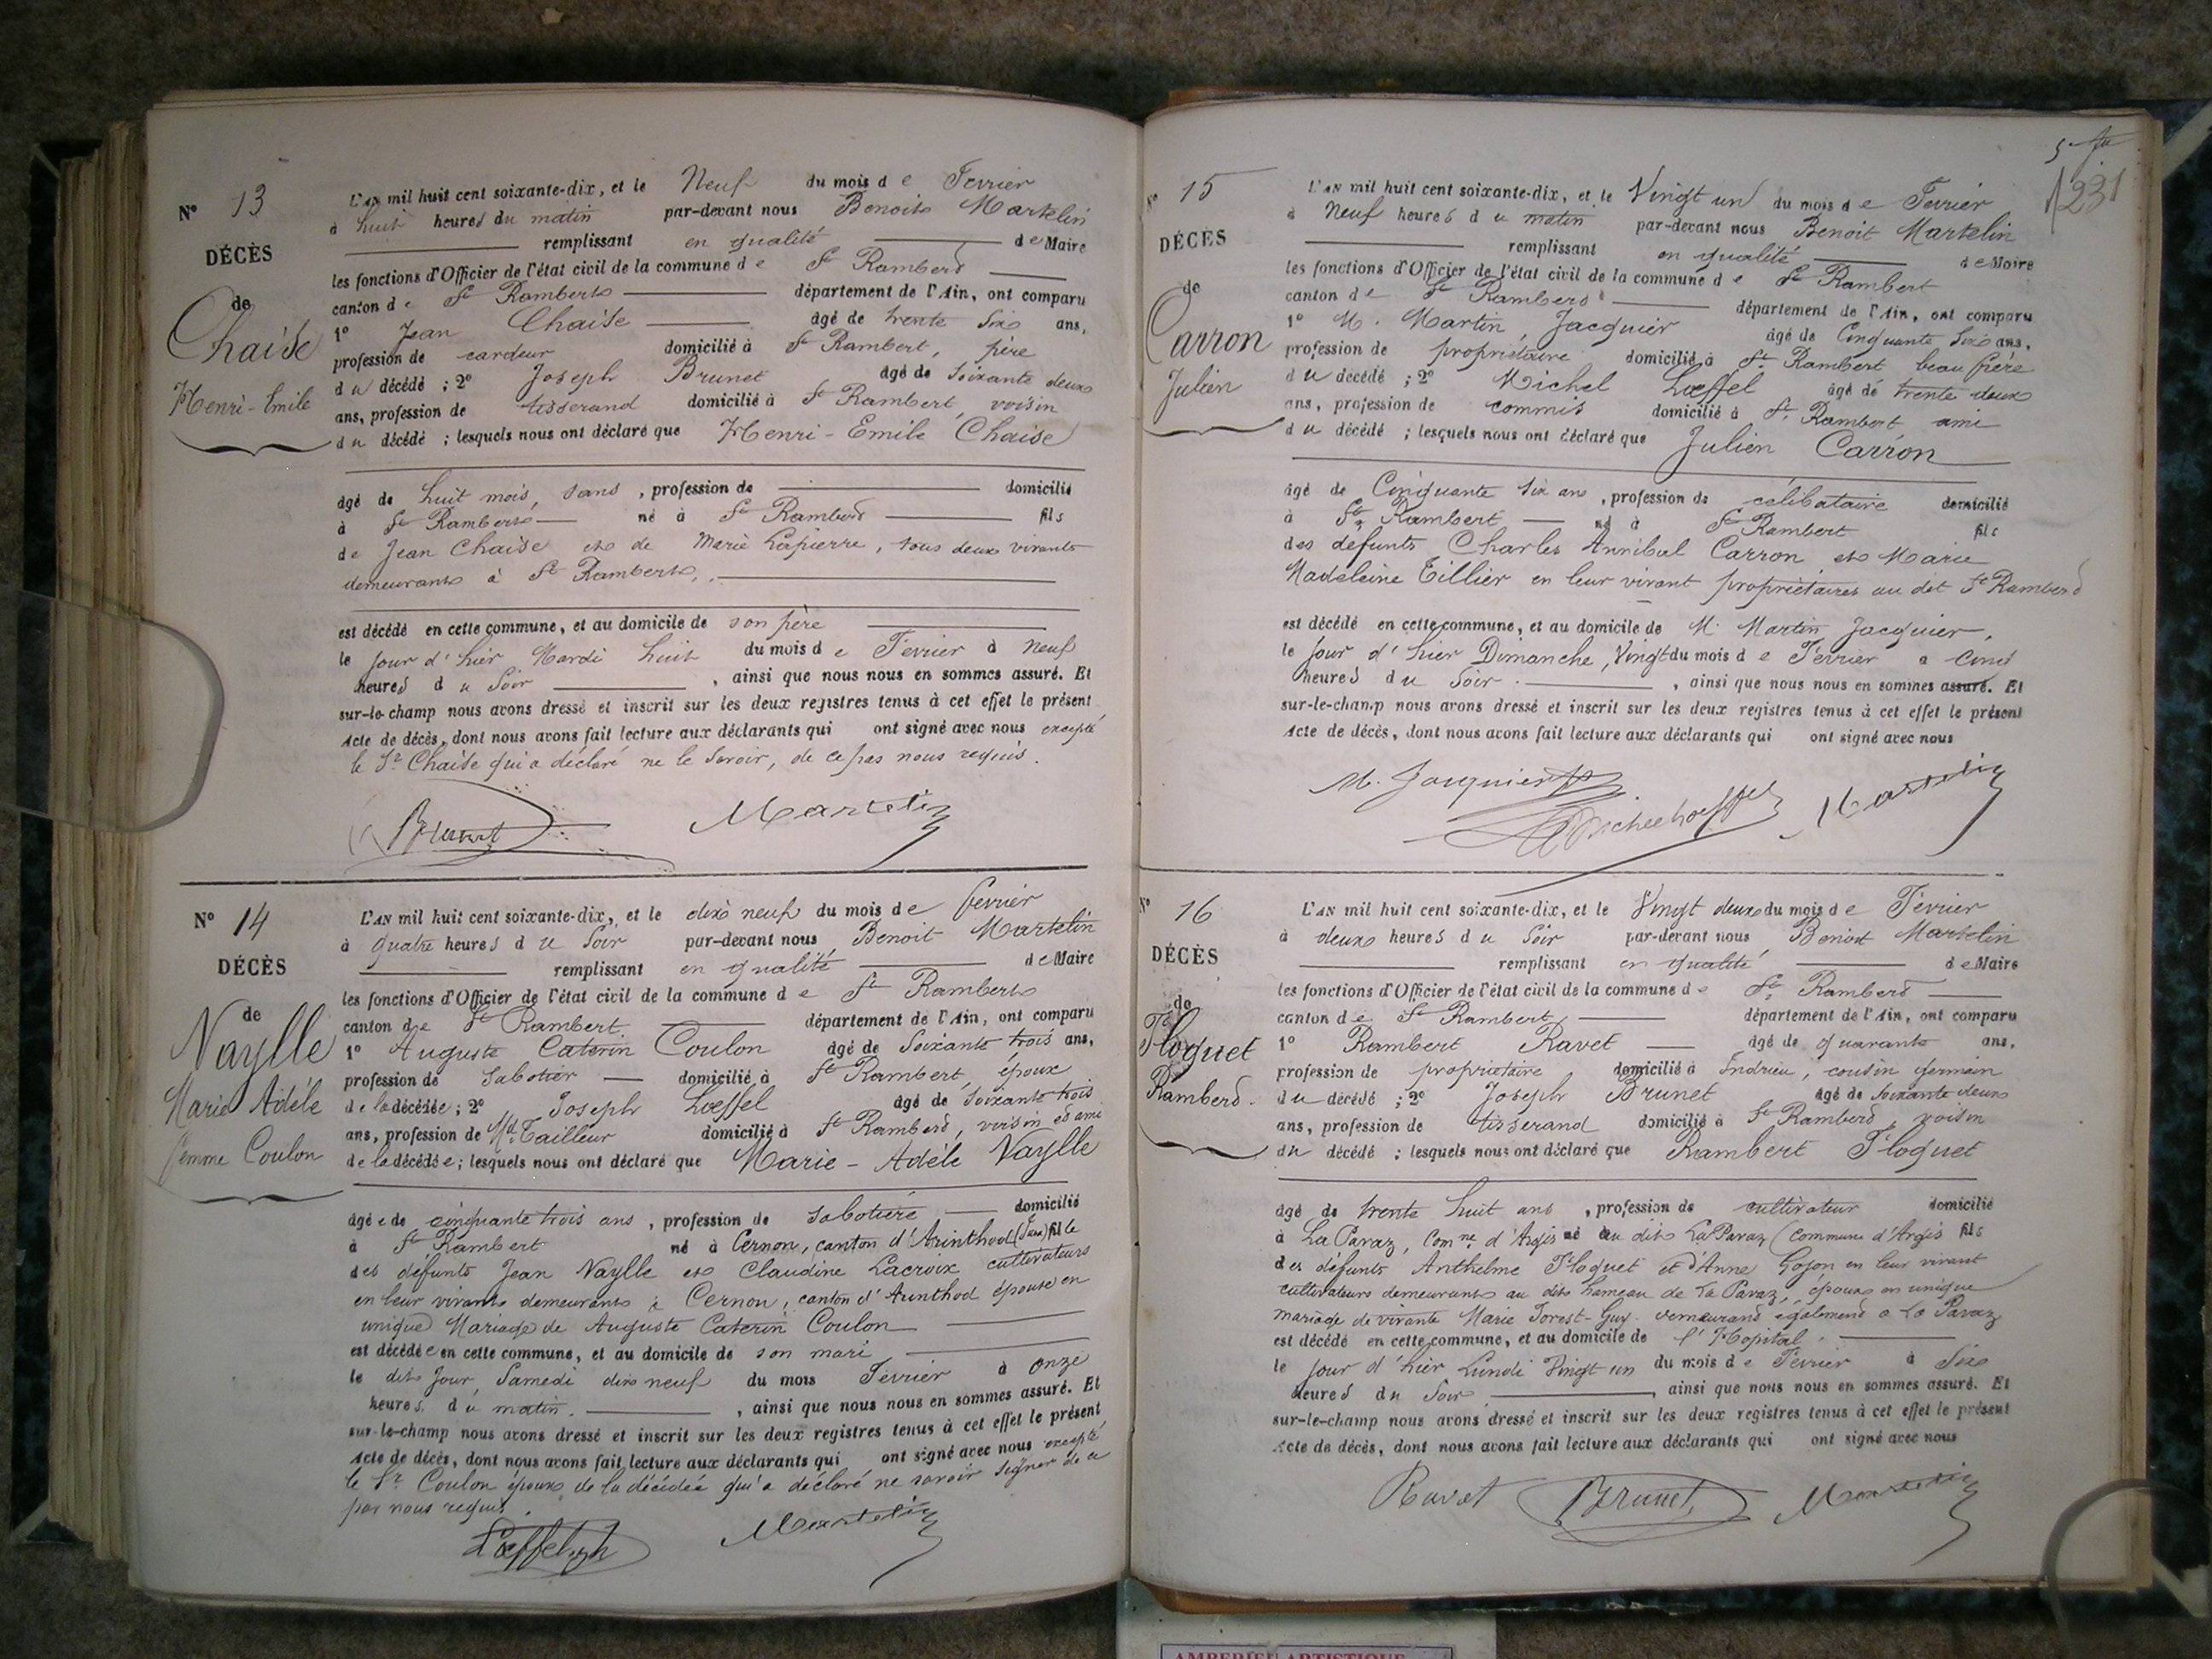 N° 13
DÉCÈS
de
Chaise
Henri-Emile
L'AN mil huit cent soixante-dix, et le Neuf du mois de Fevrier
à huit heures du matin par-devant nous Benoit Martelin
remplissant en qualité de Maire
les fonctions d'Officier de l'état civil de la commune de St Rambert
canton de St Rambert département de l'Ain, ont comparu
1° Jean Chaise âgé de trente six ans,
profession de cardeur domicilié à St Rambert, père
du décédé ; 2° Joseph Brunet âgé de soixante deux
ans, profession de tisserand domicilié à St Rambert, voisin
du décédé ; lesquels nous ont déclaré que Henri-Emile Chaise
âgé de huit mois, sans , profession de domicilié
à St Rambert né à St Rambert fils
de Jean Chaise et de Marie Lapierre, tous deux vivants
demeurants à St Rambert,
est décédé en cette commune, et au domicile de son père
le jour d'hier Mardi huit du mois de Fevrier à neuf
heures du Soir , ainsi que nous nous en sommes assuré. Et
sur-le-champ nous avons dressé et inscrit sur les deux registres tenus à cet effet le présent
Acte de décès, dont nous avons fait lecture aux déclarants qui ont signé avec nous excepté
le Sr Chaise qui a déclaré ne le savoir, de ce pas nous requis.
Brunet Martelin
N° 14
DÉCÈS
de
Naylle
Marie Adèle
femme Coulon
L'AN mil huit cent soixante-dix, et le dix neuf du mois de fevrier
à quatre heures du Soir par-devant nous Benoit Martelin
remplissant en qualité de Maire
les fonctions d'Officier de l'état civil de la commune de St Rambert
canton de St Rambert département de l'Ain, ont comparu
1° Auguste Caterin Coulon âgé de Soixante trois ans,
profession de Sabotier domicilié à St Rambert, époux
de la décédée ; 2° Joseph Lœffel âgé de soixante trois
ans, profession de Md Tailleur domicilié à St Rambert, voisin et ami
de la décédée ; lesquels nous ont déclaré que Marie-Adèle Naylle
âgée de cinquante trois ans , profession de Sabotière domicilié
à St Rambert né à Cernon, canton d'Arinthod (Jura) fille
des défunts Jean Naylle et Claudine Lacroix cultivateurs
en leur vivants demeurants à Cernon, canton d'Arinthod épouse en
unique Mariage de Auguste Caterin Coulon
est décédée en cette commune, et au domicile de son mari
le dit Jour, Samedi dix neuf du mois Fevrier à onze
heures du matin. , ainsi que nous nous en sommes assuré. Et
sur-le-champ nous avons dressé et inscrit sur les deux registres tenus à cet effet le présent
Acte de décès, dont nous avons fait lecture aux déclarants qui ont signé avec nous excepté
le Sr Coulon époux de la décédée qui a déclaré ne savoir signer de ce
par nous requis.
Lœffel Martelin
231
N° 15
DÉCÈS
de
Carron
Julien
L'AN mil huit cent soixante-dix, et le Vingt un du mois de Fevrier
à Neuf heures du matin par-devant nous Benoit Martelin
remplissant en qualité de Maire
les fonctions d'Officier de l'état civil de la commune de St Rambert
canton de St Rambert département de l'Ain, ont comparu
1° M. Martin Jacquier âgé de Cinquante Six ans,
profession de propriétaire domicilié à St Rambert beau frère
du décédé ; 2° Michel Lœffel âgé de trente deux
ans, profession de commis domicilié à St Rambert ami
du décédé ; lesquels nous ont déclaré que Julien Carron
âgé de Cinquante six ans , profession de célibataire domicilié
à St Rambert né à St Rambert fils
des défunts Charles Annibal Carron et Marie
Madeleine Tillier en leur vivant propriétaires au dit St Rambert
est décédé en cette commune, et au domicile de M. Martin Jacquier,
le jour d'hier Dimanche, Vingt du mois de Fevrier à cinq
heures du Soir. , ainsi que nous nous en sommes assuré. Et
sur-le-champ nous avons dressé et inscrit sur les deux registres tenus à cet effet le présent
Acte de décès, dont nous avons fait lecture aux déclarants qui ont signé avec nous
M. Jacquier Martelin
N° 16
DÉCÈS
de
Floquet
Rambert
L'AN mil huit cent soixante-dix, et le Vingt deux du mois de Fevrier
à deux heures du Soir par-devant nous Benoit Martelin
remplissant en qualité de Maire
les fonctions d'Officier de l'état civil de la commune de St Rambert
canton de St Rambert département de l'Ain, ont comparu
1° Rambert Ravet âgé de quarante ans,
profession de propriétaire domicilié à Indrieu, cousin germain
du décédé ; 2° Joseph Brunet âgé de soixante deux
ans, profession de tisserand domicilié à St Rambert, voisin
du décédé ; lesquels nous ont déclaré que Rambert Floquet
âgé de trente huit ans , profession de cultivateur domicilié
à La Pavaz, Comne d'Argis né au dit La Pavaz (commune d'Argis fils
des défunts Anthelme Floquet et d'Anne Gojon en leur vivant
cultivateurs demeurants au dit hameau de La Pavaz, époux en unique
mariage de vivante Marie Jorest-Guy demeurand également à La Pavaz
est décédé en cette commune, et au domicile de l'Hopital.
le jour d'hier Lundi Vingt un du mois de Fevrier à Six
heures du Soir , ainsi que nous nous en sommes assuré. Et
sur-le-champ nous avons dressé et inscrit sur les deux registres tenus à cet effet le présent
Acte de décès, dont nous avons fait lecture aux déclarants qui ont signé avec nous
Ravet Brunet Martelin
AMBERIEU ARTISTIQUE